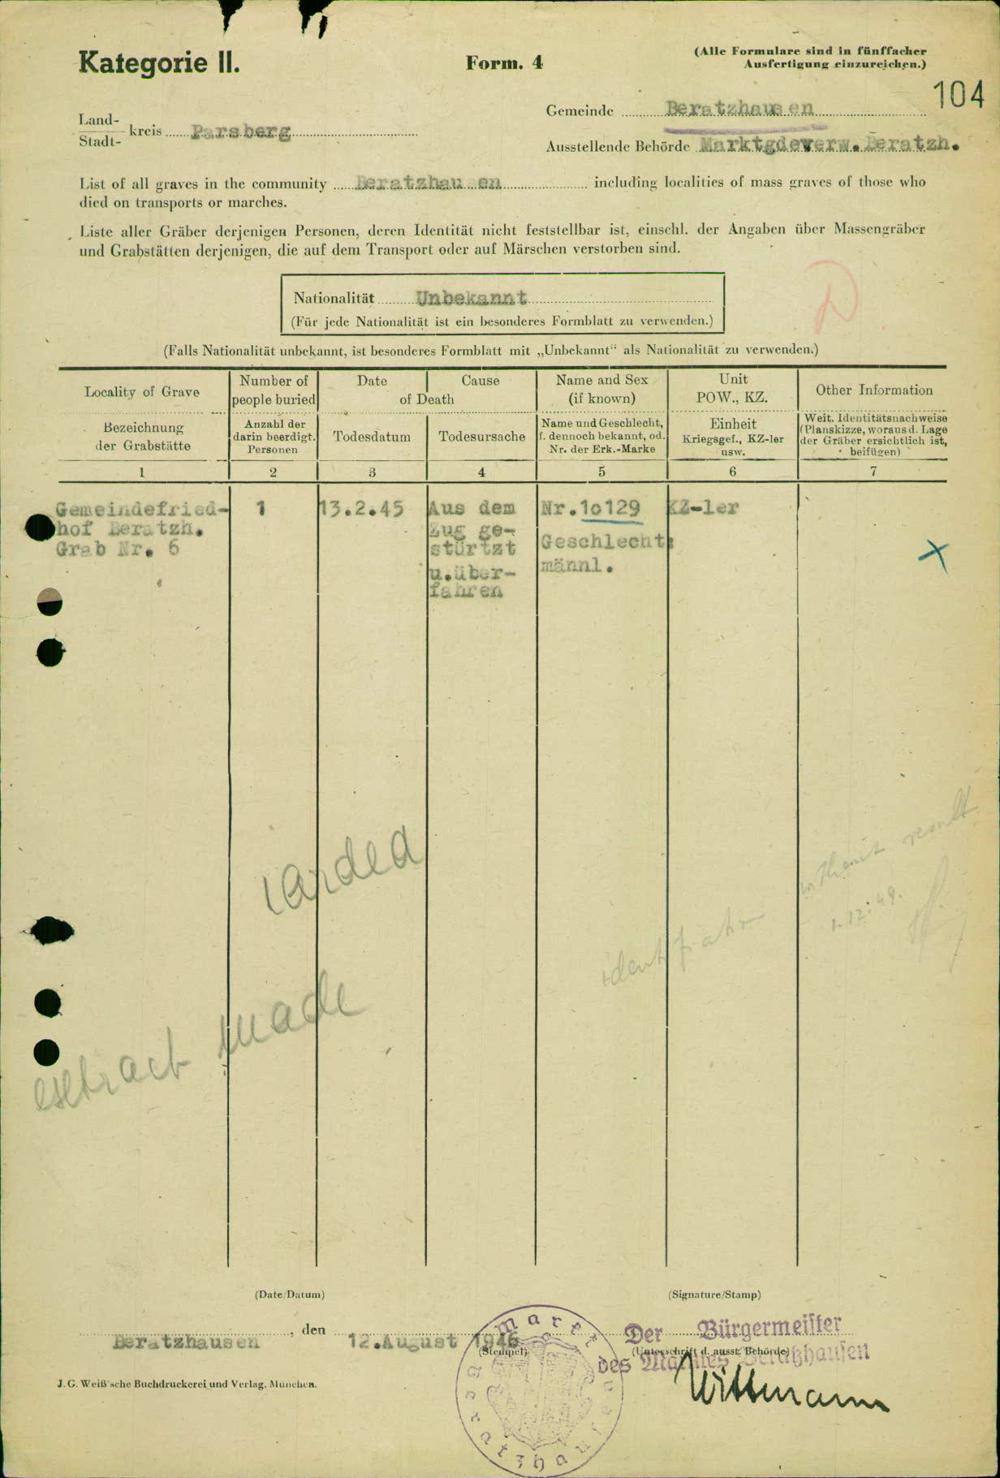 Kategorie II.
Form. 4
(Alle Formulare sind in fünffacher
Ausfertigung einzureichen.)
104
Land-
Stadt-
kreis Parsberg
Gemeinde Beratzhausen
Ausstellende Behörde Marktgdeverw. Beratzh.
List of all graves in the community Beratzhau en including localities of mass graves of those who
died on transports or marches.
Liste aller Gräber derjenigen Personen, deren Identität nicht feststellbar ist, einschl. der Angaben über Massengräber
und Grabstätten derjenigen, die auf dem Transport oder auf Märschen verstorben sind.
Nationalität Unbekannt
(Für jede Nationalität ist ein besonderes Formblatt zu verwenden.)
D
(Falls Nationalität unbekannt, ist besonderes Formblatt mit „Unbekannt“ als Nationalität zu verwenden.)
Locality of Grave
Number of
people buried
Date
Cause
of Death
Name and Sex
(if known)
Unit
POW., KZ.
Other Information
Bezeichnung
der Grabstätte
Anzahl der
darin beerdigt.
Personen
Todesdatum
Todesursache
Name und Geschlecht,
f. dennoch bekannt, od.
Nr. der Erk.-Marke
Einheit
Kriegsgef., KZ-ler
usw.
Weit. Identitätsnachweise
(Planskizze, woraus d. Lage
der Gräber ersichtlich ist,
beifügen)
1 2 3 4 5 6 7
Gemeindefried-
hof Beratzh.
Grab Nr. 6
1
13.2.45
Aus dem
Zug ge-
stürtzt
u.über-
fahren
Nr.1o129
Geschlecht:
männl.
KZ-ler
x
carded
without result
1.12.49.
extract made
(Date/Datum)
(Signature/Stamp)
Beratzhausen, den 12.August 1946
(Stempel)
Der Bürgermeister
(Unterschrift d. ausst. Behörde)
des Marktes Beratzhausen
Wittmann
Markt Beratzhausen
J. G. Weiß'sche Buchdruckerei und Verlag. München.